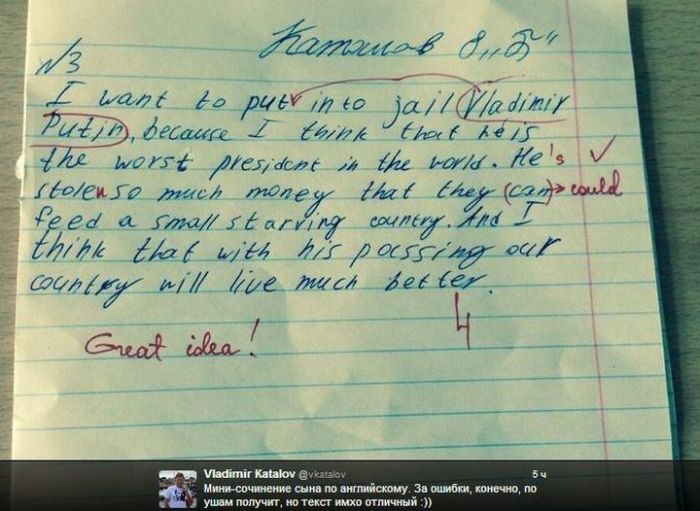 Каталов 8 „Б"
№3
I want to put into jail Vladimir
Putin, because I think that he is
the worst president in the world. He's
stolen so much money that they (can) could
feed a small starving country. And I
think that with his passing our
country will live much better.
Great idea! 4
Vladimir Katalov @vkatalov 5 ч
Мини-сочинение сына по английскому. За ошибки, конечно, по
ушам получит, но текст имхо отличный :))